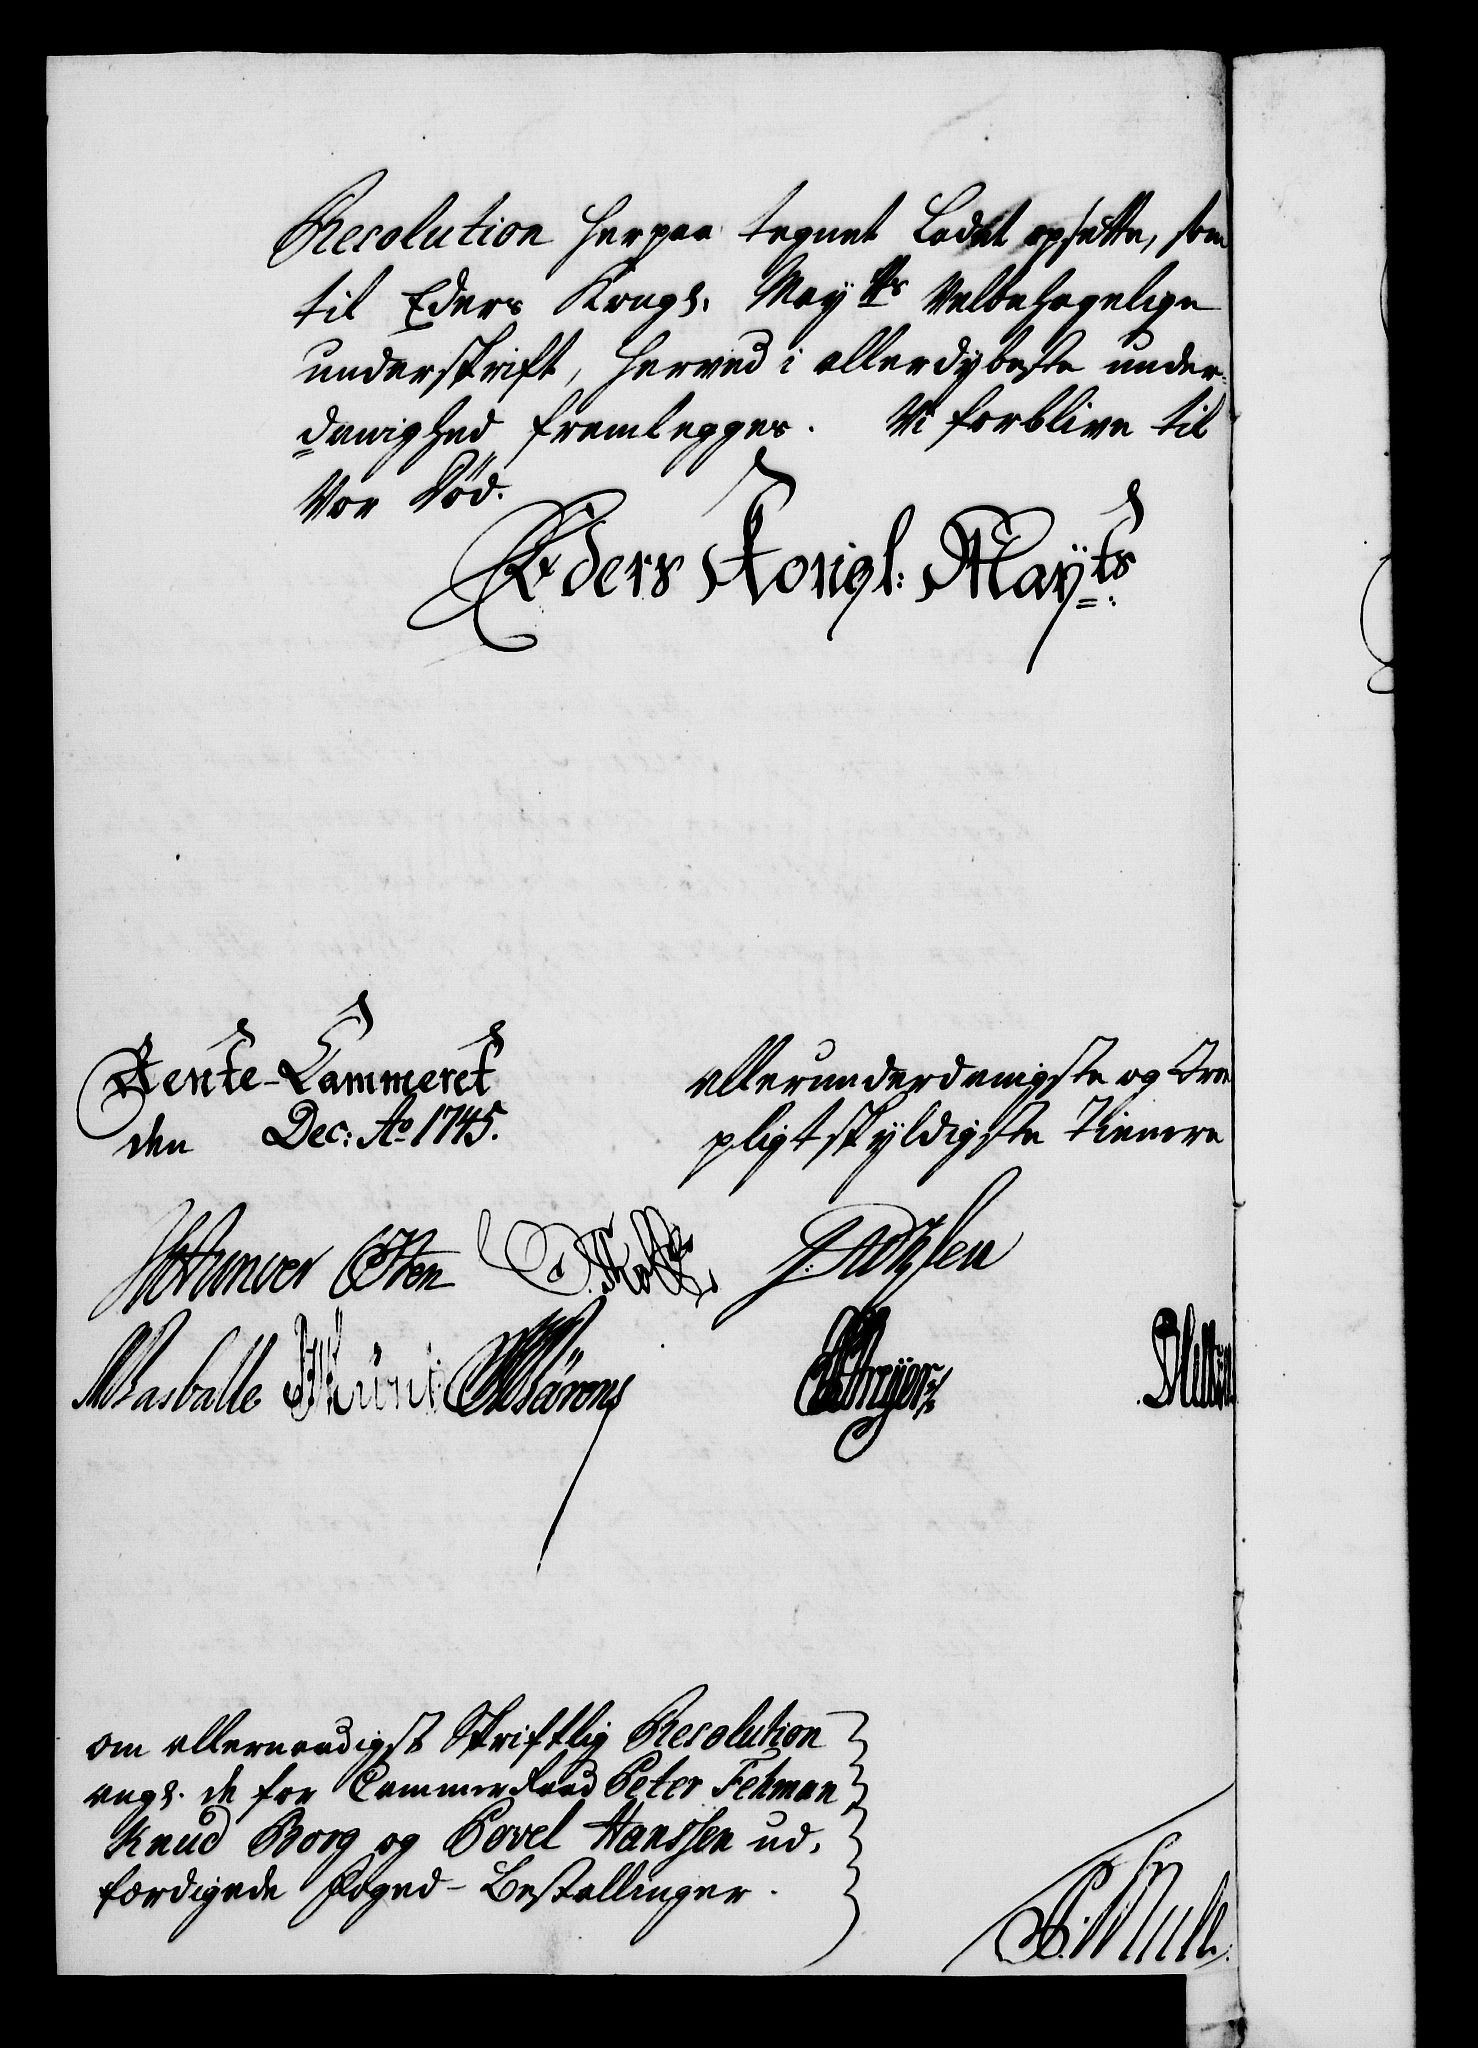 Resolution herpaa tegnet ladet opsætte, som
til Eders Kongl. Mayts Velbehagelige
underskrift, herved i allerdybeste under-
danighed fremlegges. Vi forblive til
Vor Død.
Eders Konigl: Mayts:
Rente-Cammeret
den Dec: Ao 1745.
allerunderdanigste og troe
pligtskyldigste Tienere
Rasballe
om allernaadigst Skriftlig Resolution
angl. de for Cammerraad Peter Fehman
Knud Borg og Povel Hanssen ud-
færdigede Foged-Bestallinger.